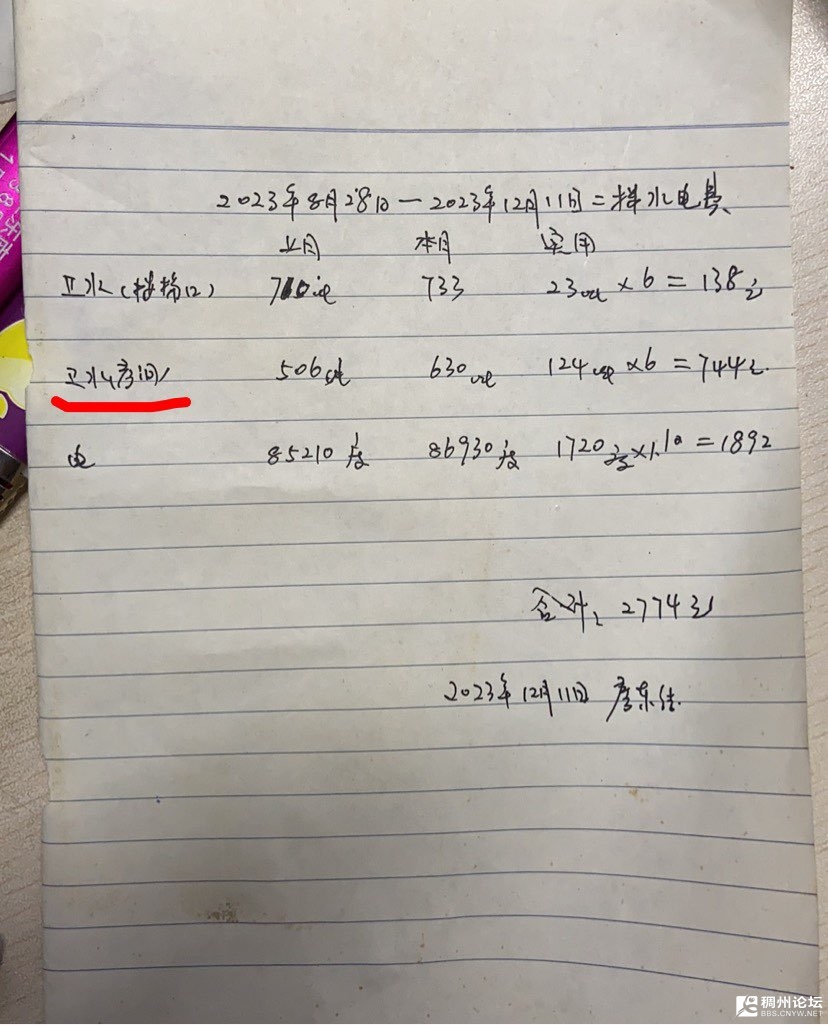 2023年8月28日—2023年12月11日二楼水电费
上月 本月 实用
卫水(楼梯口) 710吨 733 23吨×6=138元
卫水(房间) 506吨 630吨 124吨×6=744元
电 85210度 86930度 1720度×1.10=1892
合计: 2774元
2023年12月11日 房东
稠州论坛
BBS.CNYW.NET